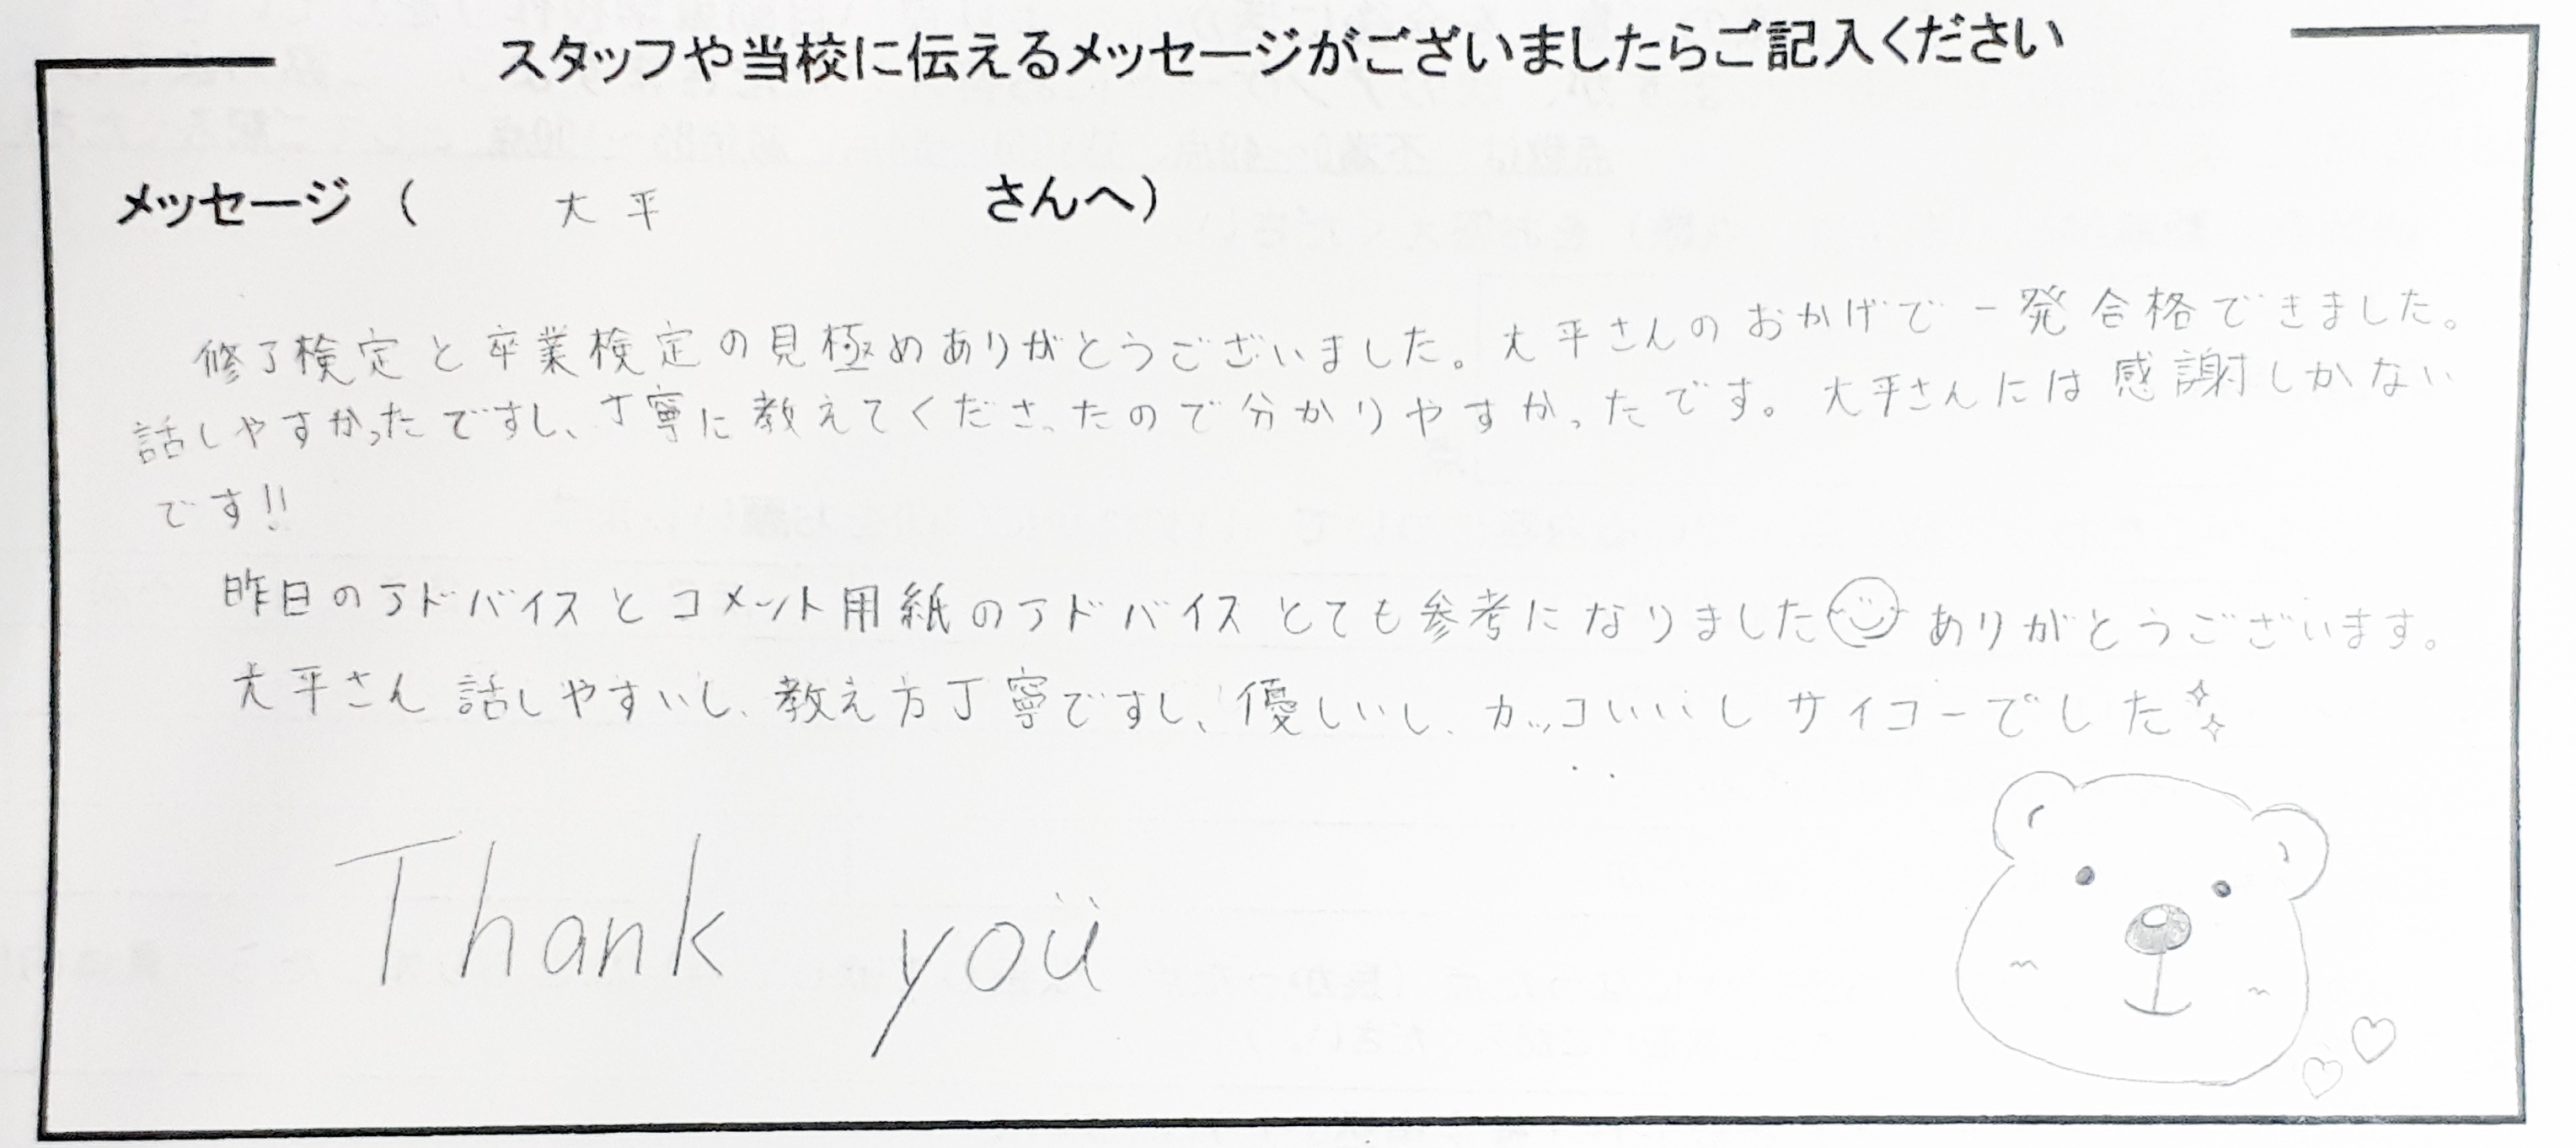 スタッフや当校に伝えるメッセージがございましたらご記入ください
メッセージ（　大平　さんへ）
修了検定と卒業検定の見極めありがとうございました。大平さんのおかげで一発合格できました。
話しやすかったですし、丁寧に教えてくださったので分かりやすかったです。大平さんには感謝しかない
です!!
昨日のアドバイスとコメント用紙のアドバイスとても参考になりました😊ありがとうございます。
大平さん話しやすいし、教え方丁寧ですし、優しいし、カッコいいしサイコーでした✨
Thank you